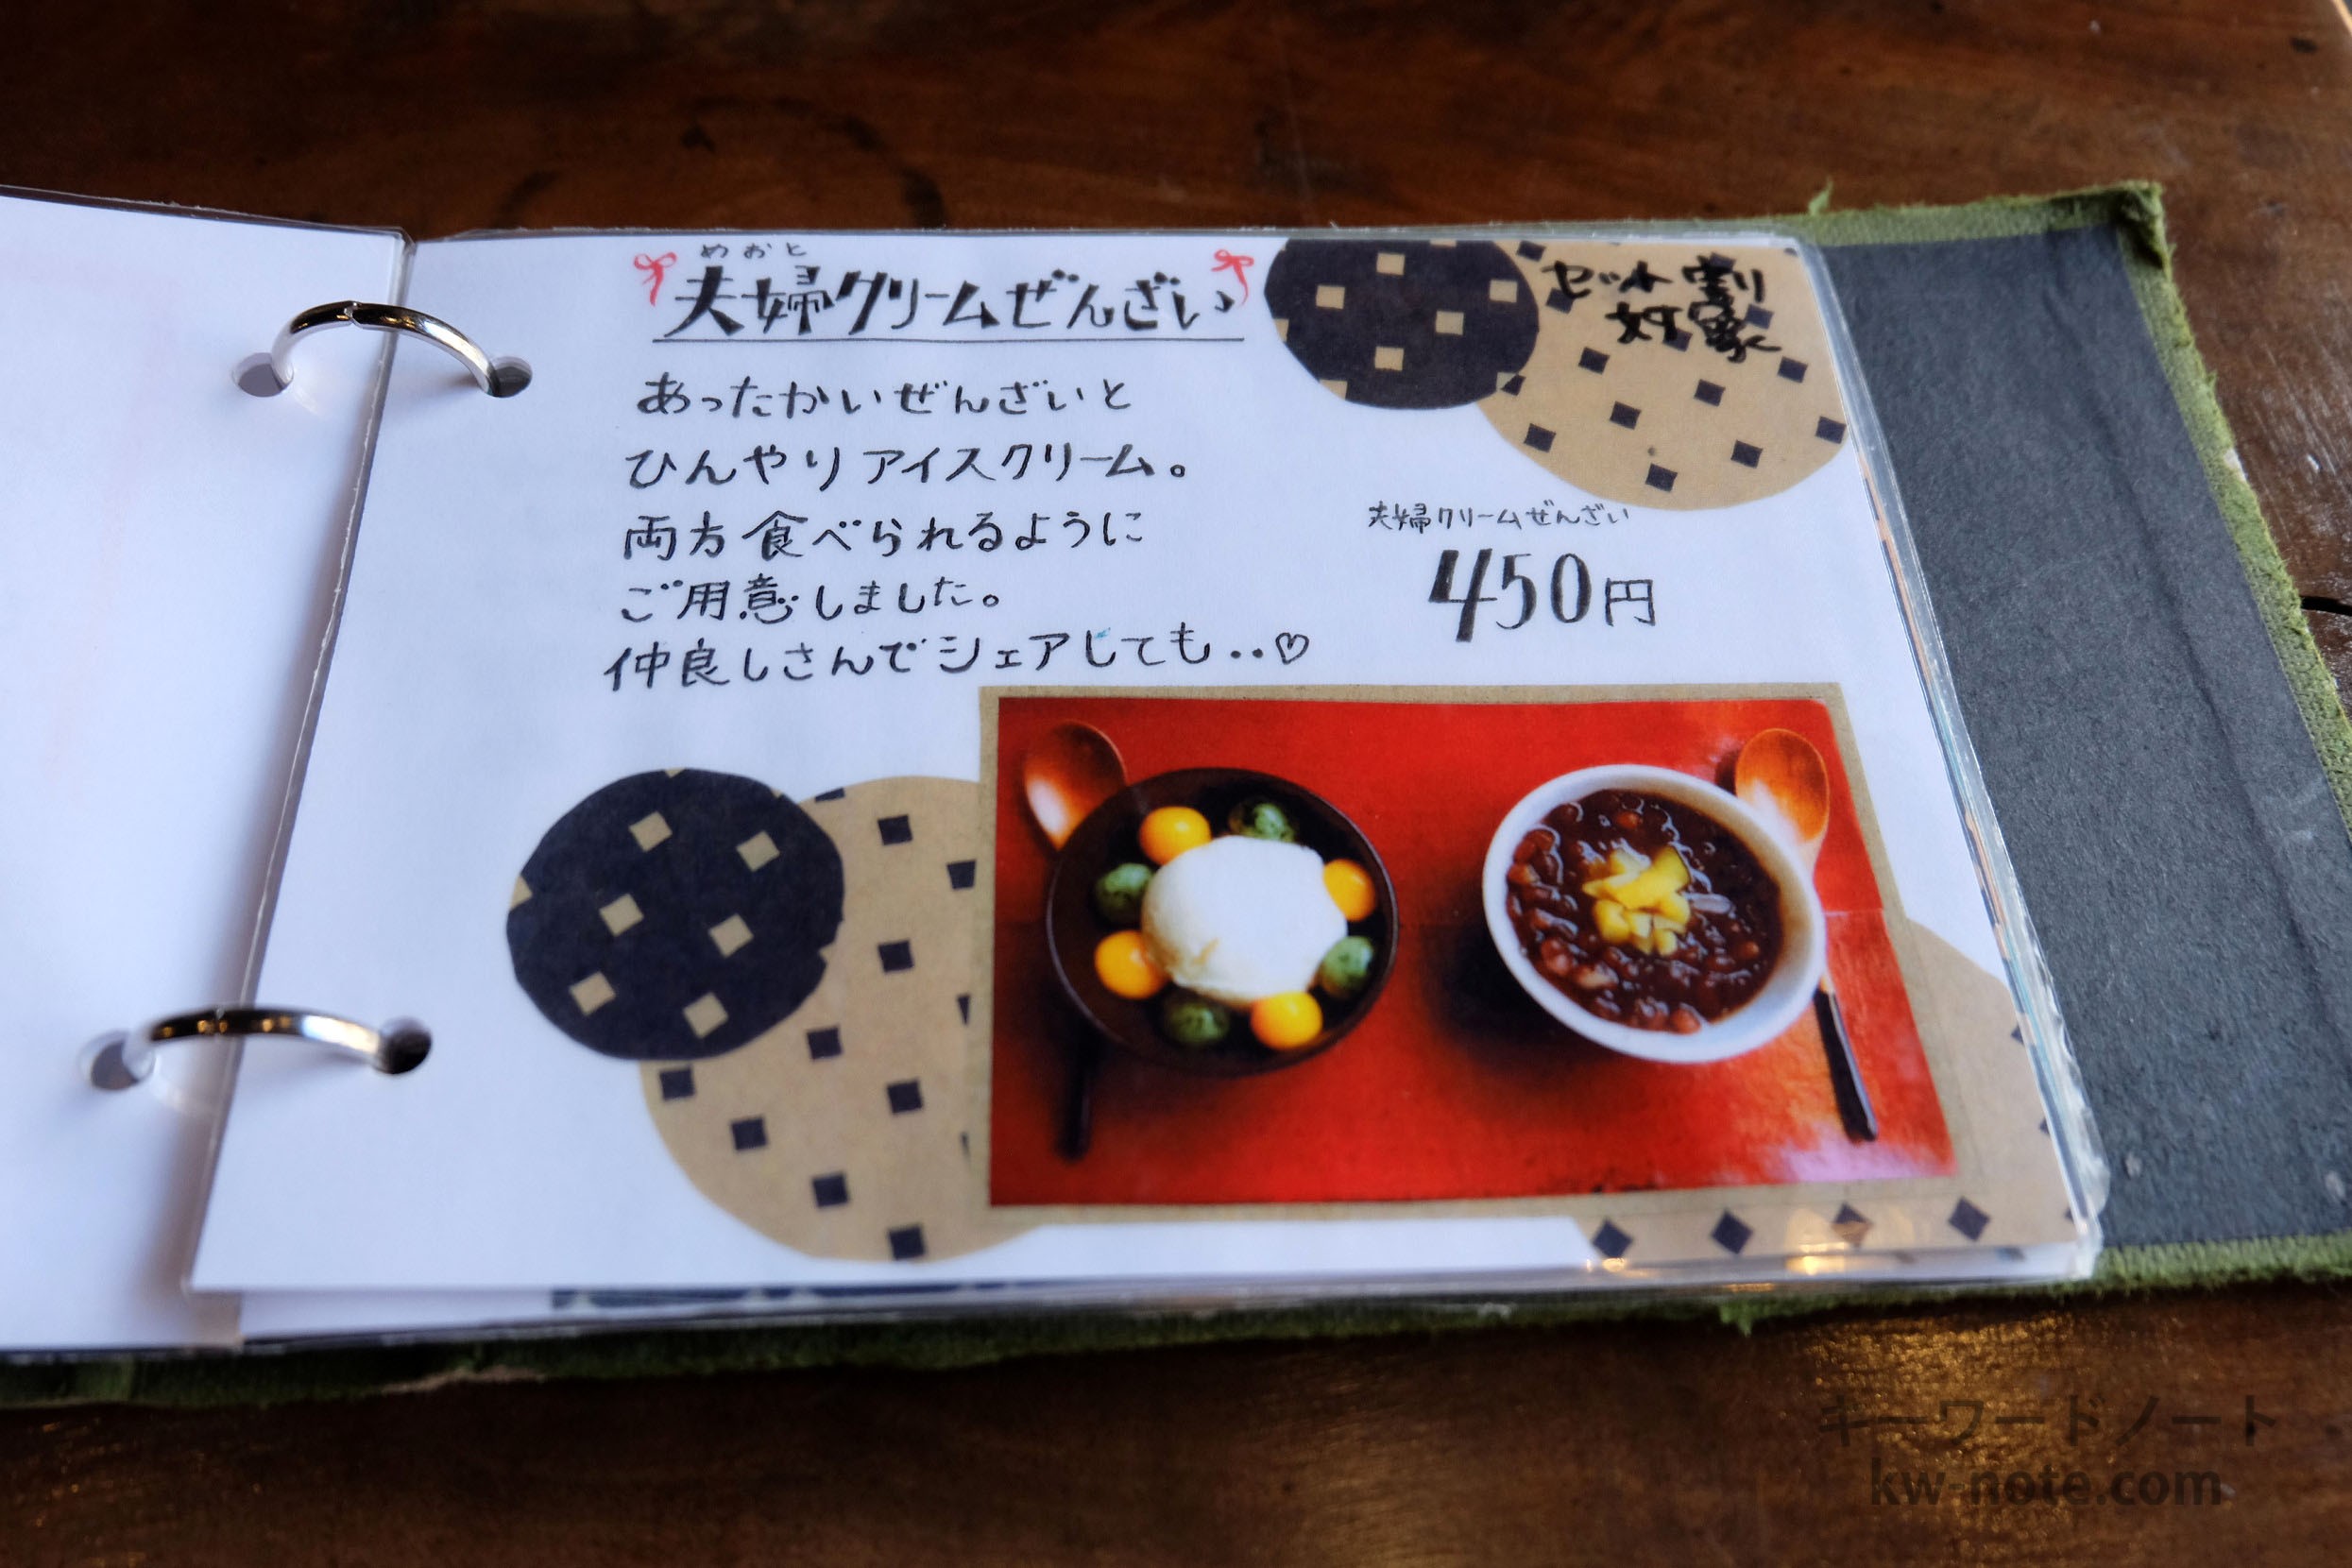 めおと
夫婦クリームぜんざい
セット割
対象
あったかいぜんざいと
ひんやりアイスクリーム。
両方食べられるように
ご用意しました。
仲良しさんでシェアしても‥♡
夫婦クリームぜんざい
450円
キーワードノート
kw-note.com